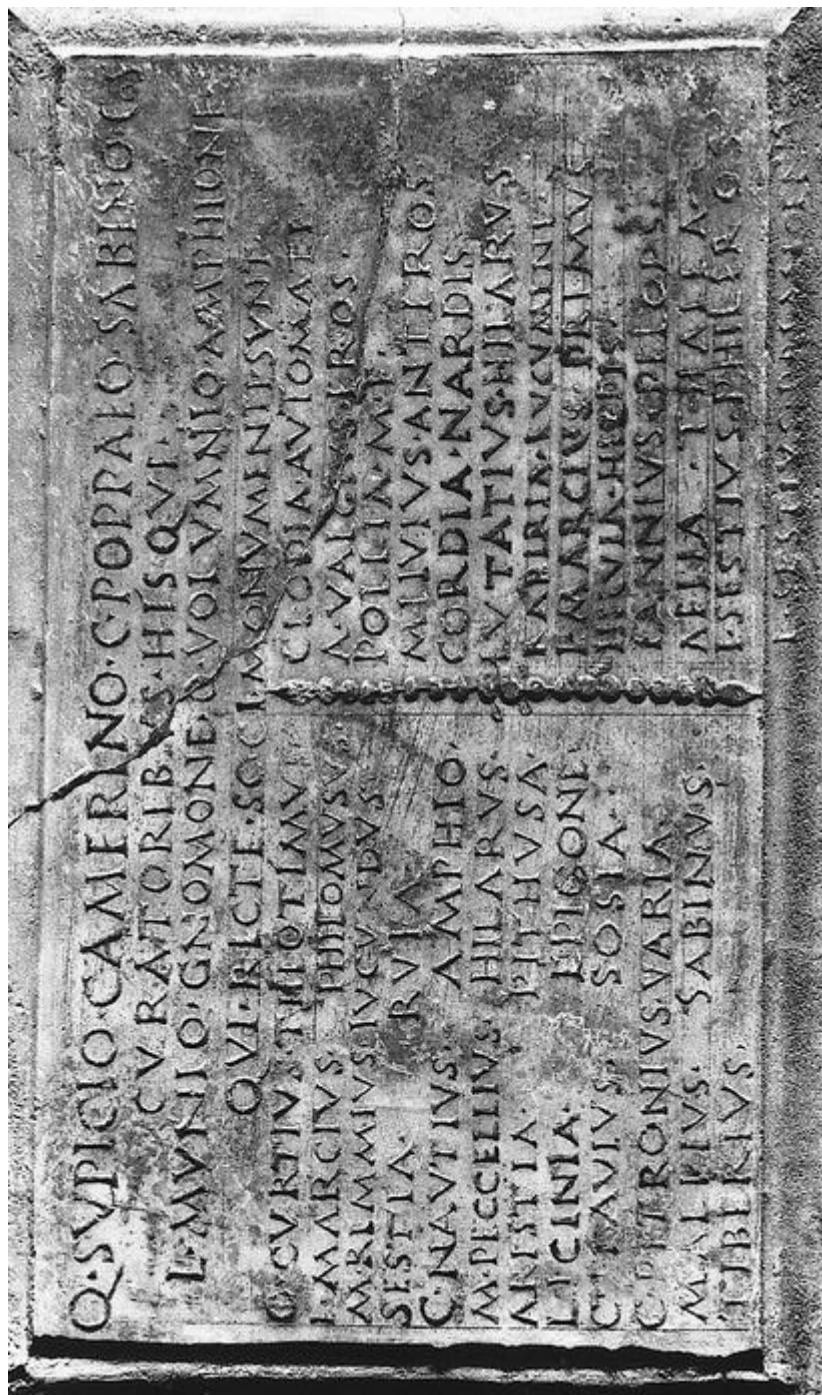 Q·SVPICIO·CAMERINO·C·POPPAEO·SABINO·COS
CVRATORIB·AS·HIS·QVI·
L·MVNIO·GNOMONE·C·VOLVMNIO·AMPHIONE·
QVI·RECTE·SOCI·MONVMENTI·SVNT·
C·CVRTIVS·THIOTIMVS
L·MARCIVS· PHILOMVSVS·
M·REMMIVS·IVCVNDVS·
SESTIA· RVFA
C·NAVTIVS· AMPHIO·
M·PECCELLIVS· HILARVS·
ARESTIA· PITHVSA·
LICINIA· EPIGONE·
C·FLAVIVS· SOSIA·
C·PETRONIVS·VARIA·
M·ALFIVS· SABINVS·
TIBERIVS·
CLODIA·AVTOMATE
A·VALGIVS·EROS·
POLLIA·M·F·
M·LIVIVS·ANTEROS
CORDIA·NARDIS
LVTATIVS·HILARVS
RABIRIA·
L·MARCIVS·PRIMVS
HELVIA·HELPIS
FANNIVS·PELOPS
AELIA·THALEA·
L·SESTIVS·PHILEROS
L·SESTIVS